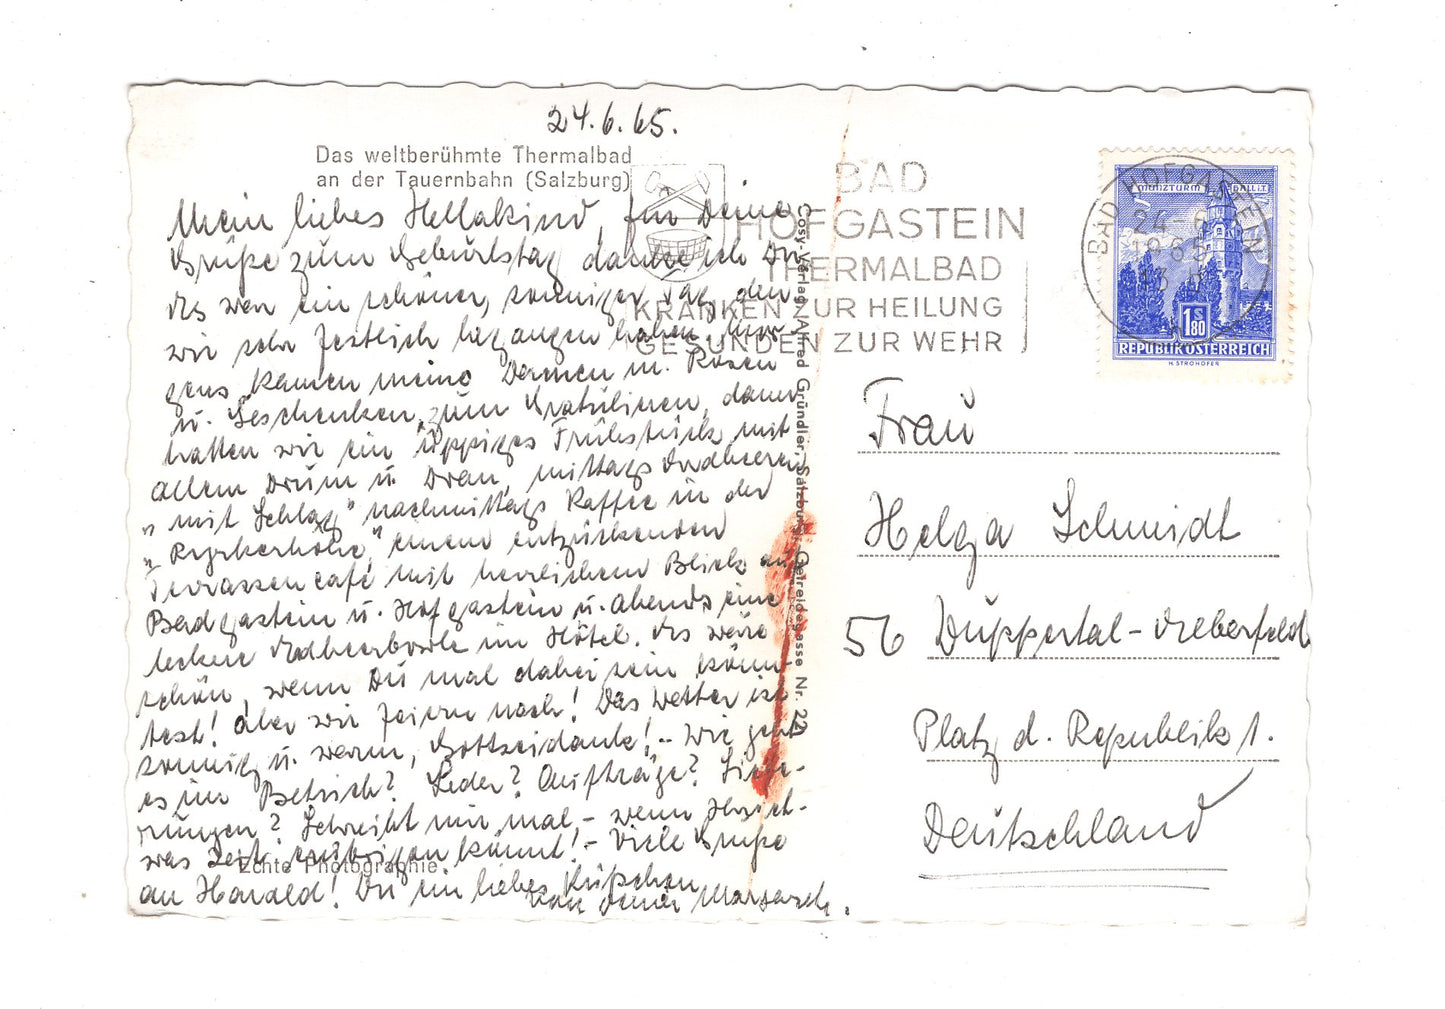 24.6.65.
Das weltberühmte Thermalbad
an der Tauernbahn (Salzburg)
Mein liebes Hellakind, für Deine
Grüße zum Geburtstag danke ich Dir
Es war ein schöner, sonniger Tag, den
wir sehr festlich begangen haben. Mor-
gens kamen meine Damen m. Rosen
u. Geschenken, zum Gratulieren, dann
hatten wir ein üppiges Frühstück mit
allem Drum u. Dran, mittags Erdbeeren
"mit Schlag" nachmittags Kaffee in der
einem entzückenden
Terrassencafé mit herrlichem Blick auf
Badgastein u. Hofgastein u. abends eine
leckere Erdbeerbowle im Hotel. Es wäre
schön, wenn Du mal dabei sein könn-
test! Aber wir feiern nach! Das Wetter ist
sonnig u. warm, Gottseidank! – Wie geht
es im Betrieb? Leder? Aufträge? Liefe-
rungen? Schreibt mir mal, – wenn Ihr
was Zeit erübrigen könnt! – Viele Grüße
an Harald! Dir ein liebes Küßchen
von Deiner
Echte Photographie
Cosy-Verlag, Alfred Gründler, Salzburg, Getreidegasse Nr. 22
BAD
HOFGASTEIN
THERMALBAD
KRANKEN ZUR HEILUNG
GESUNDEN ZUR WEHR
BAD HOFGASTEIN
24.-6.
1965
MÜNZTURM HALL i.T.
1 S 80
REPUBLIK ÖSTERREICH
H. STROHOFER
Frau
Helga Schmidt
56 Wuppertal-Elberfeld
Platz d. Republik 1.
Deutschland